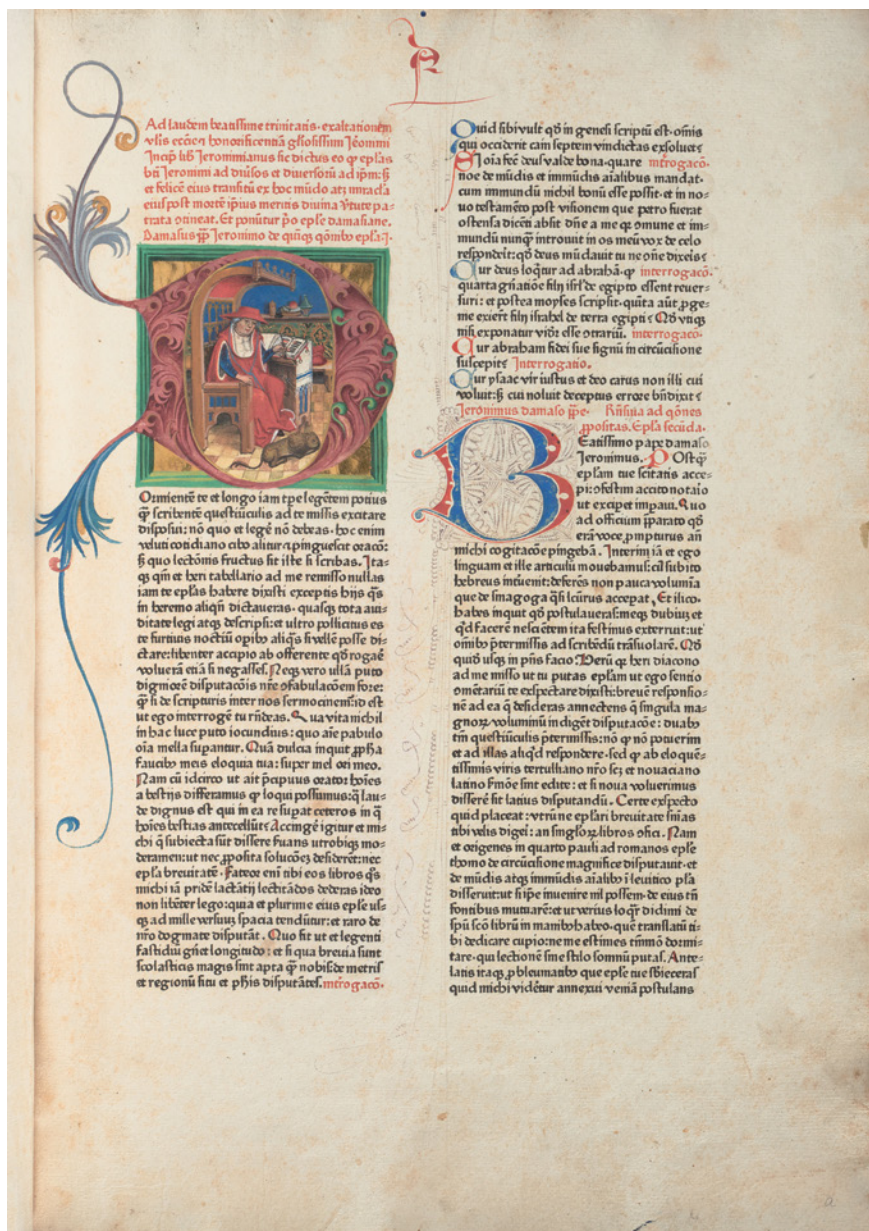 Ad laudem beatissime trinitatis· exaltationem
vlis ecclie ⁊ honorificentiā gl̄iosissimi Ieronimi
Incip̄ lib̄ Ieronimianus sic dictus eo ꝙ ep̄las
bt̄i Ieronimi ad diūsos et diuersoꝝ ad ip̄m: s̄ꝫ
et felicē eius transitū ex hoc mūdo atꝫ miracl̄a
eius post mortē ip̄ius meritis diuina v̄tute pa-
trata ↄtineat. Et ponūtur p̄o ep̄le damasiane.
Damasus pp̄ Ieronimo de quīqꝫ qōnibꝰ ep̄la·I·
Ormientē te et longo iam tp̄e legētem potius
q̄ꝫ scribentē questiūculis ad te missis excitare
disposui: nō quo et legē nō debeas· hoc enim
veluti cotidiano cibo alitur ⁊ pinguescit oracō:
s̄ꝫ quo lectōnis fructus sit iste si scribas. Ita-
qꝫ qm̄ et heri tabellario ad me remisso nullas
iam te ep̄las habere dixisti exceptis hijs q̄s
in heremo aliqn̄ dictaueras· quasqꝫ tota aui-
ditate legi atqꝫ descripsi: et ultro pollicitus es
te furtiuis noctiū op̄ibꝰ aliq̄s si vellē posse di-
ctare: libenter accipio ab offerente q̄d rogaē
volueră etiā si negasses. Neqꝫ vero ullā puto
digniorē disputacōis nr̄e ↄfabulacōem fore:
q̄ꝫ si de scripturis inter nos sermocinem̄: id est
ut ego interrogē tu rn̄deas. Qua vita nichil
in hac luce puto iocundius: quo aīe pabulo
oīa mella supantur. Quā dulcia inquit ꝓpha
faucibꝰ meis eloquia tua: super mel ori meo.
Nam cū idcirco ut ait p̄cipuus orator hoīes
a bestijs differamus ꝙ loqui possumus: q̄ lau-
de dignus est qui in ea re supat ceteros in q̄
hoīes bestias antecellūt? Accingē igitur et mi-
chi q̄ subiecta sūt dissere s̄uans utrobiqꝫ mo-
deramen: ut nec ꝓposita solucōes desiderēt: nec
ep̄la breuitatē· Fateor eni tibi eos libros q̄s
michi iā pridē lactātij lectitādos dederas ideo
non libēter lego: quia et plurime eius ep̄le us-
qꝫ ad mille versuū spacia tendūtur: et raro de
nr̄o dogmate disputāt. Quo fit ut et legenti
fastidiū gn̄et longitudo: et si qua breuia sunt
scolasticis magis sint apta q̄ꝫ nobis: de metris
et regionū situ et ph̄is disputātes. Int̄rogacō·
Quid sibi vult qd̄ in genesi scriptū est· omīs
qui occiderit cain septem vindictas exsoluet?
Si oīa fec̄ deus valde bona· quare Int̄rogacō·
noe de mūdis et immūdis aīalibus mandat·
cum immundū nichil bonū esse possit· et in no-
uo testamēto post visionem que petro fuerat
ostensa dicēti absit dn̄e a me qꝫ omune et im-
mundū nunq̄ introiuit in os meū vox de celo
respondeit: qd̄ deus mūdauit tu ne ↄne dixeis?
Cur deus loq̄tur ad abrahā· ꝙ interrogacō·
quarta gn̄atiōe filij isrl̄ de egipto essent reuer-
suri: et postea moyses scripsit· quīta aūt ꝓge-
nie exiert filij israhel de terra egipti? Qd̄ vtiqꝫ
nisi exponatur vidēt esse ↄtrariū. interrogacō·
Cur abraham fidei sue signū in circūcisione
suscepit? Interrogatio.
Cur ysaac vir iustus et deo carus non illi cui
voluit: s̄ꝫ cui noluit deceptus errore bn̄dixit?
Ieronimus damaso pp̄e· Rn̄siua ad qōnes
ꝓpositas. Ep̄la secūda.
Eatissimo pape damaso
Ieronimus. Postq̄ꝫ
ep̄lam tue scitatis acce-
pi: ↄfestim accito notaīo
ut exciꝑet impaui. Quo
ad officium ip̄arato qd̄
erā voce ꝓmpturus an̄
michi cogitacōe pingebā. Interim iā et ego
linguam et ille articulū mouebamus: cū subito
hebreus intuenit: deferēs non pauca volumīa
que de sinagoga q̄si lc̄urus acceꝑat. Et ilico·
habes inquit qd̄ postulaueras: meqꝫ dubiuꝫ et
q̄d facerē nesciētem ita festinus exterruit: ut
omibꝰ p̄termissis ad scribēdū trāsuolarē. Qd̄
quid usqꝫ in p̄ns facio. Verū qꝫ heri diacono
ad me misso ut tu putas ep̄lam ut ego sentio
ↄmētariū te exspectare dixisti: breuē responsio-
nē ad ea q̄ desideras annectens q̄ singula ma-
gnoꝝ voluminū indigēt disputacōe: duabꝰ
tm̄ questiūculis p̄termissis: nō q̄ nō potuerim
et ad illas aliq̄d respondere· sed ꝙ ab eloquē-
tissimis viris tertulliano nr̄o scꝫ et nouaciano
latino s̄mōe sint edite: et si noua voluerimus
disserē sit latius disputandū. Certe exspecto
quid placeat: vtrū ne ep̄lari breuitate sn̄ias
tibi velis digeri: an singl̄oꝝ libros ↄfici. Nam
et origenes in quarto pauli ad romanos ep̄le
thomo de circūcisione magnifice disputauit· et
de mūdis atqꝫ immūdis aīalibꝰ ī leuitico pl̄a
disseruit: ut si ip̄e inuenire nil possem· de eius tn̄
fontibus mutuarē: et ut verius loq̄r didimi de
spū sc̄o librū in manibꝰ habeo· quē translatū ti-
bi dedicare cupio: ne me estimes tm̄mō dormi-
tare· qui lectionē sine stilo somnū putas. Ante-
latis itaqꝫ ꝓbleumatibꝰ que ep̄le tue s̄biceras
quid michi vidētur annexui veniā postulans